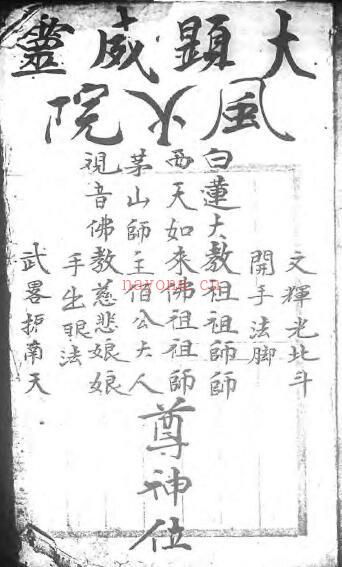 大顕威靈
風火院
文輝光北斗
開手法脚
白蓮大教祖祖師師
西天如來佛祖祖師
茅山師主伯公大人
視音佛教慈悲娘娘
手生眼法
武畧护南天
尊神位
nayona.cn